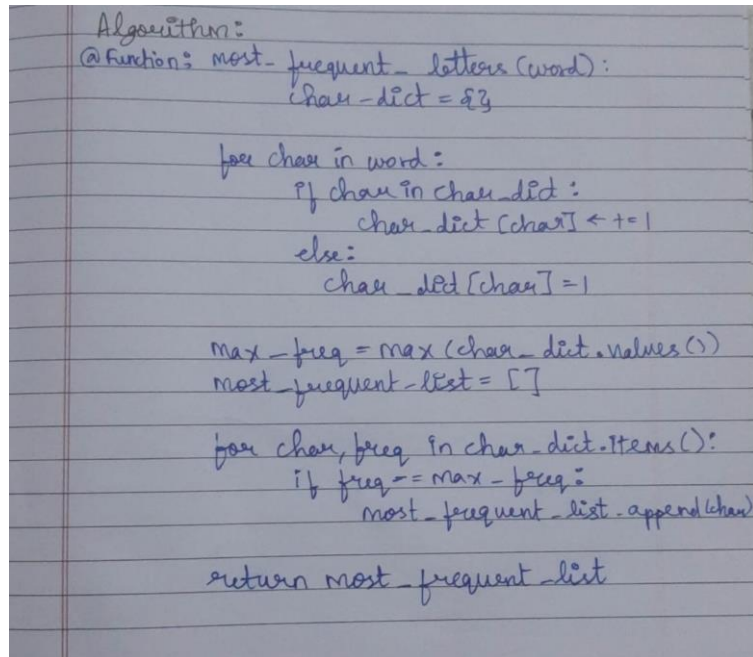 Algorithm:
@ Function: most_frequent_letters(word):
char-dict = {}
for char in word:
if char in char_dict:
char_dict [char] ← += 1
else:
char_dict [char] = 1
max_freq = max (char_dict.values())
most_frequent_list = []
for char, freq in char_dict.items():
if freq == max_freq:
most_frequent_list.append(char)
return most_frequent_list